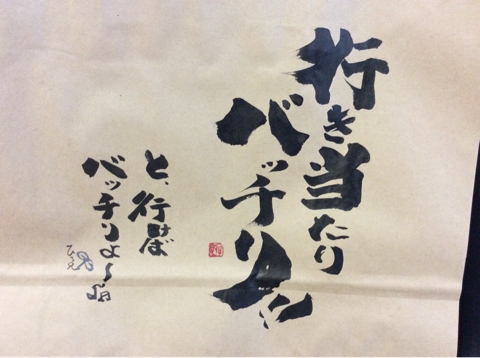 行き当たり
バッチリ!!
と、行けば
バッチリよ〜